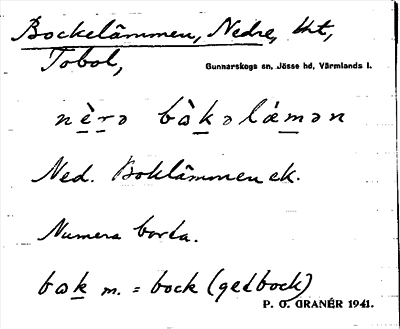 Bockelämmen, Nedre, tht,
Tobol,
Gunnarskogs sn, Jösse hd, Värmlands l.
nè̱ṟə bò̱ḵəlá̱m̱ən
Ned. Boklämmen ek.
Numera borta.
bɷḵ m. = bock (getbock)
P. G. GRANÉR 1941.